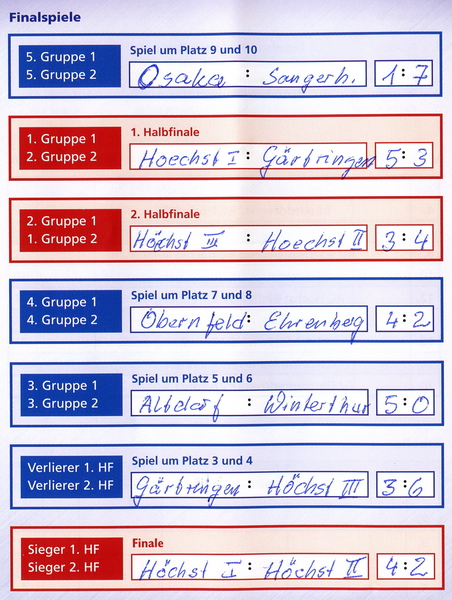 Finalspiele
5. Gruppe 1
5. Gruppe 2
Spiel um Platz 9 und 10
Osaka : Sangerh. 1:7
1. Gruppe 1
2. Gruppe 2
1. Halbfinale
Hoechst I : Gärtringen 5:3
2. Gruppe 1
1. Gruppe 2
2. Halbfinale
Höchst III : Hoechst II 3:4
4. Gruppe 1
4. Gruppe 2
Spiel um Platz 7 und 8
Obernfeld : Ehrenberg 4:2
3. Gruppe 1
3. Gruppe 2
Spiel um Platz 5 und 6
Altdorf : Winterthur 5:0
Verlierer 1. HF
Verlierer 2. HF
Spiel um Platz 3 und 4
Gärtringen : Höchst III 3:6
Sieger 1. HF
Sieger 2. HF
Finale
Höchst I : Höchst II 4:2